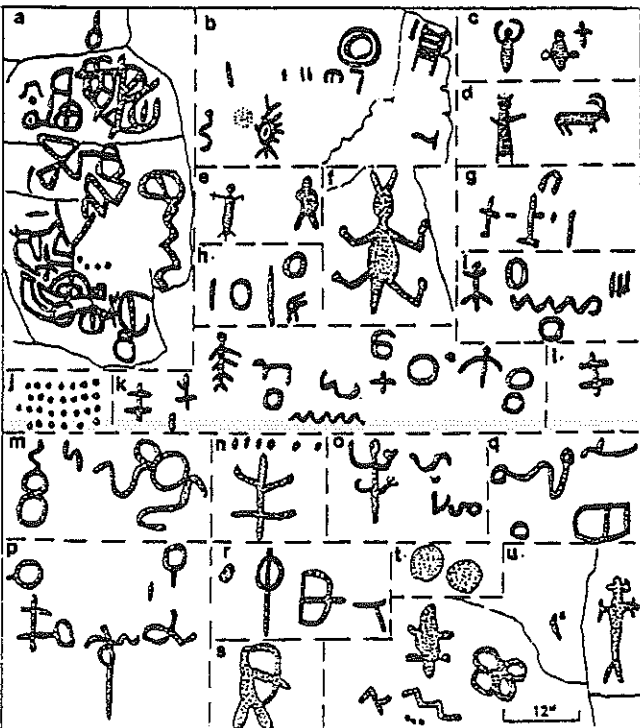 a b c
d
e f g
h. i
j k l.
m n o q
p r t. u.
s
12"